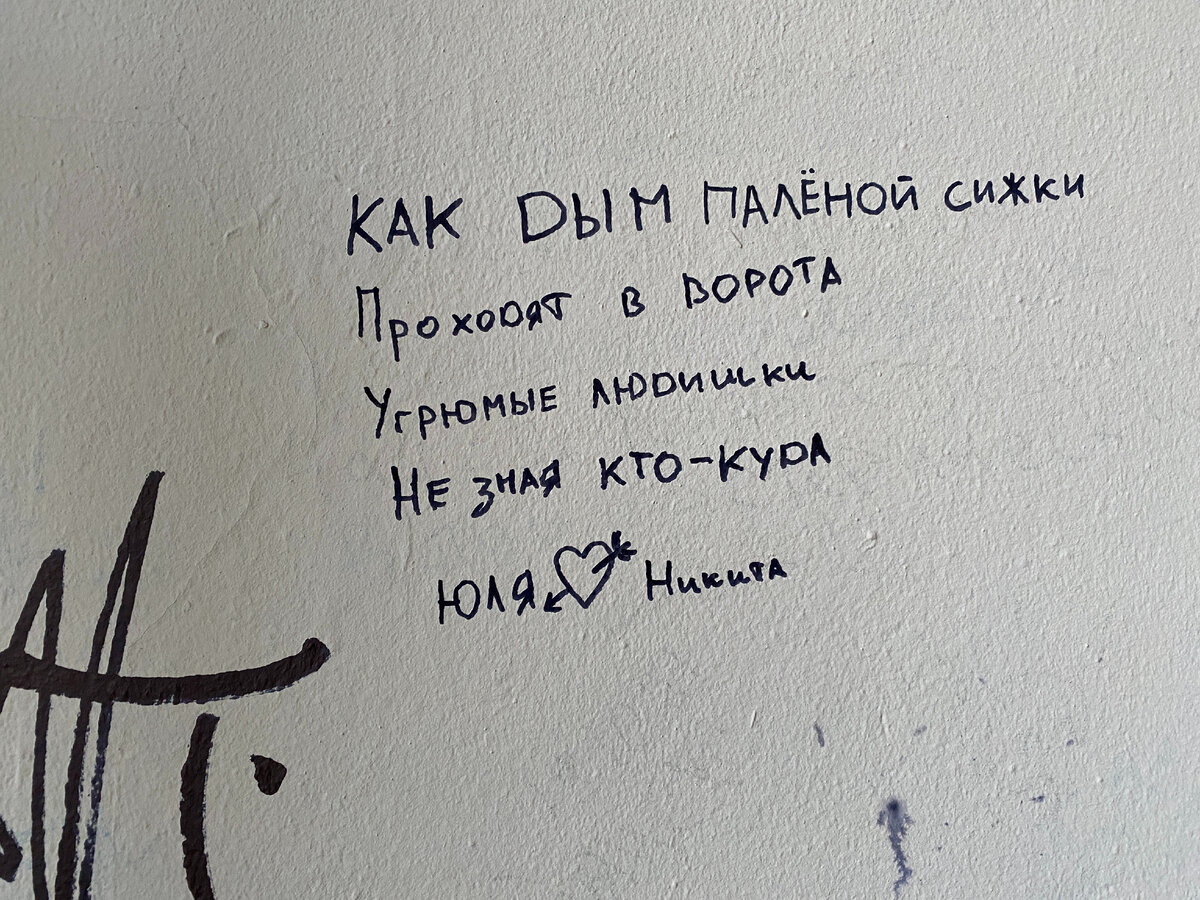 КАК ДЫМ ПАЛЁНОЙ СИЖКИ
ПРОХОДЯТ В ВОРОТА
УГРЮМЫЕ ЛЮДИШКИ
НЕ ЗНАЯ КТО-КУДА
ЮЛЯ НИКИТА